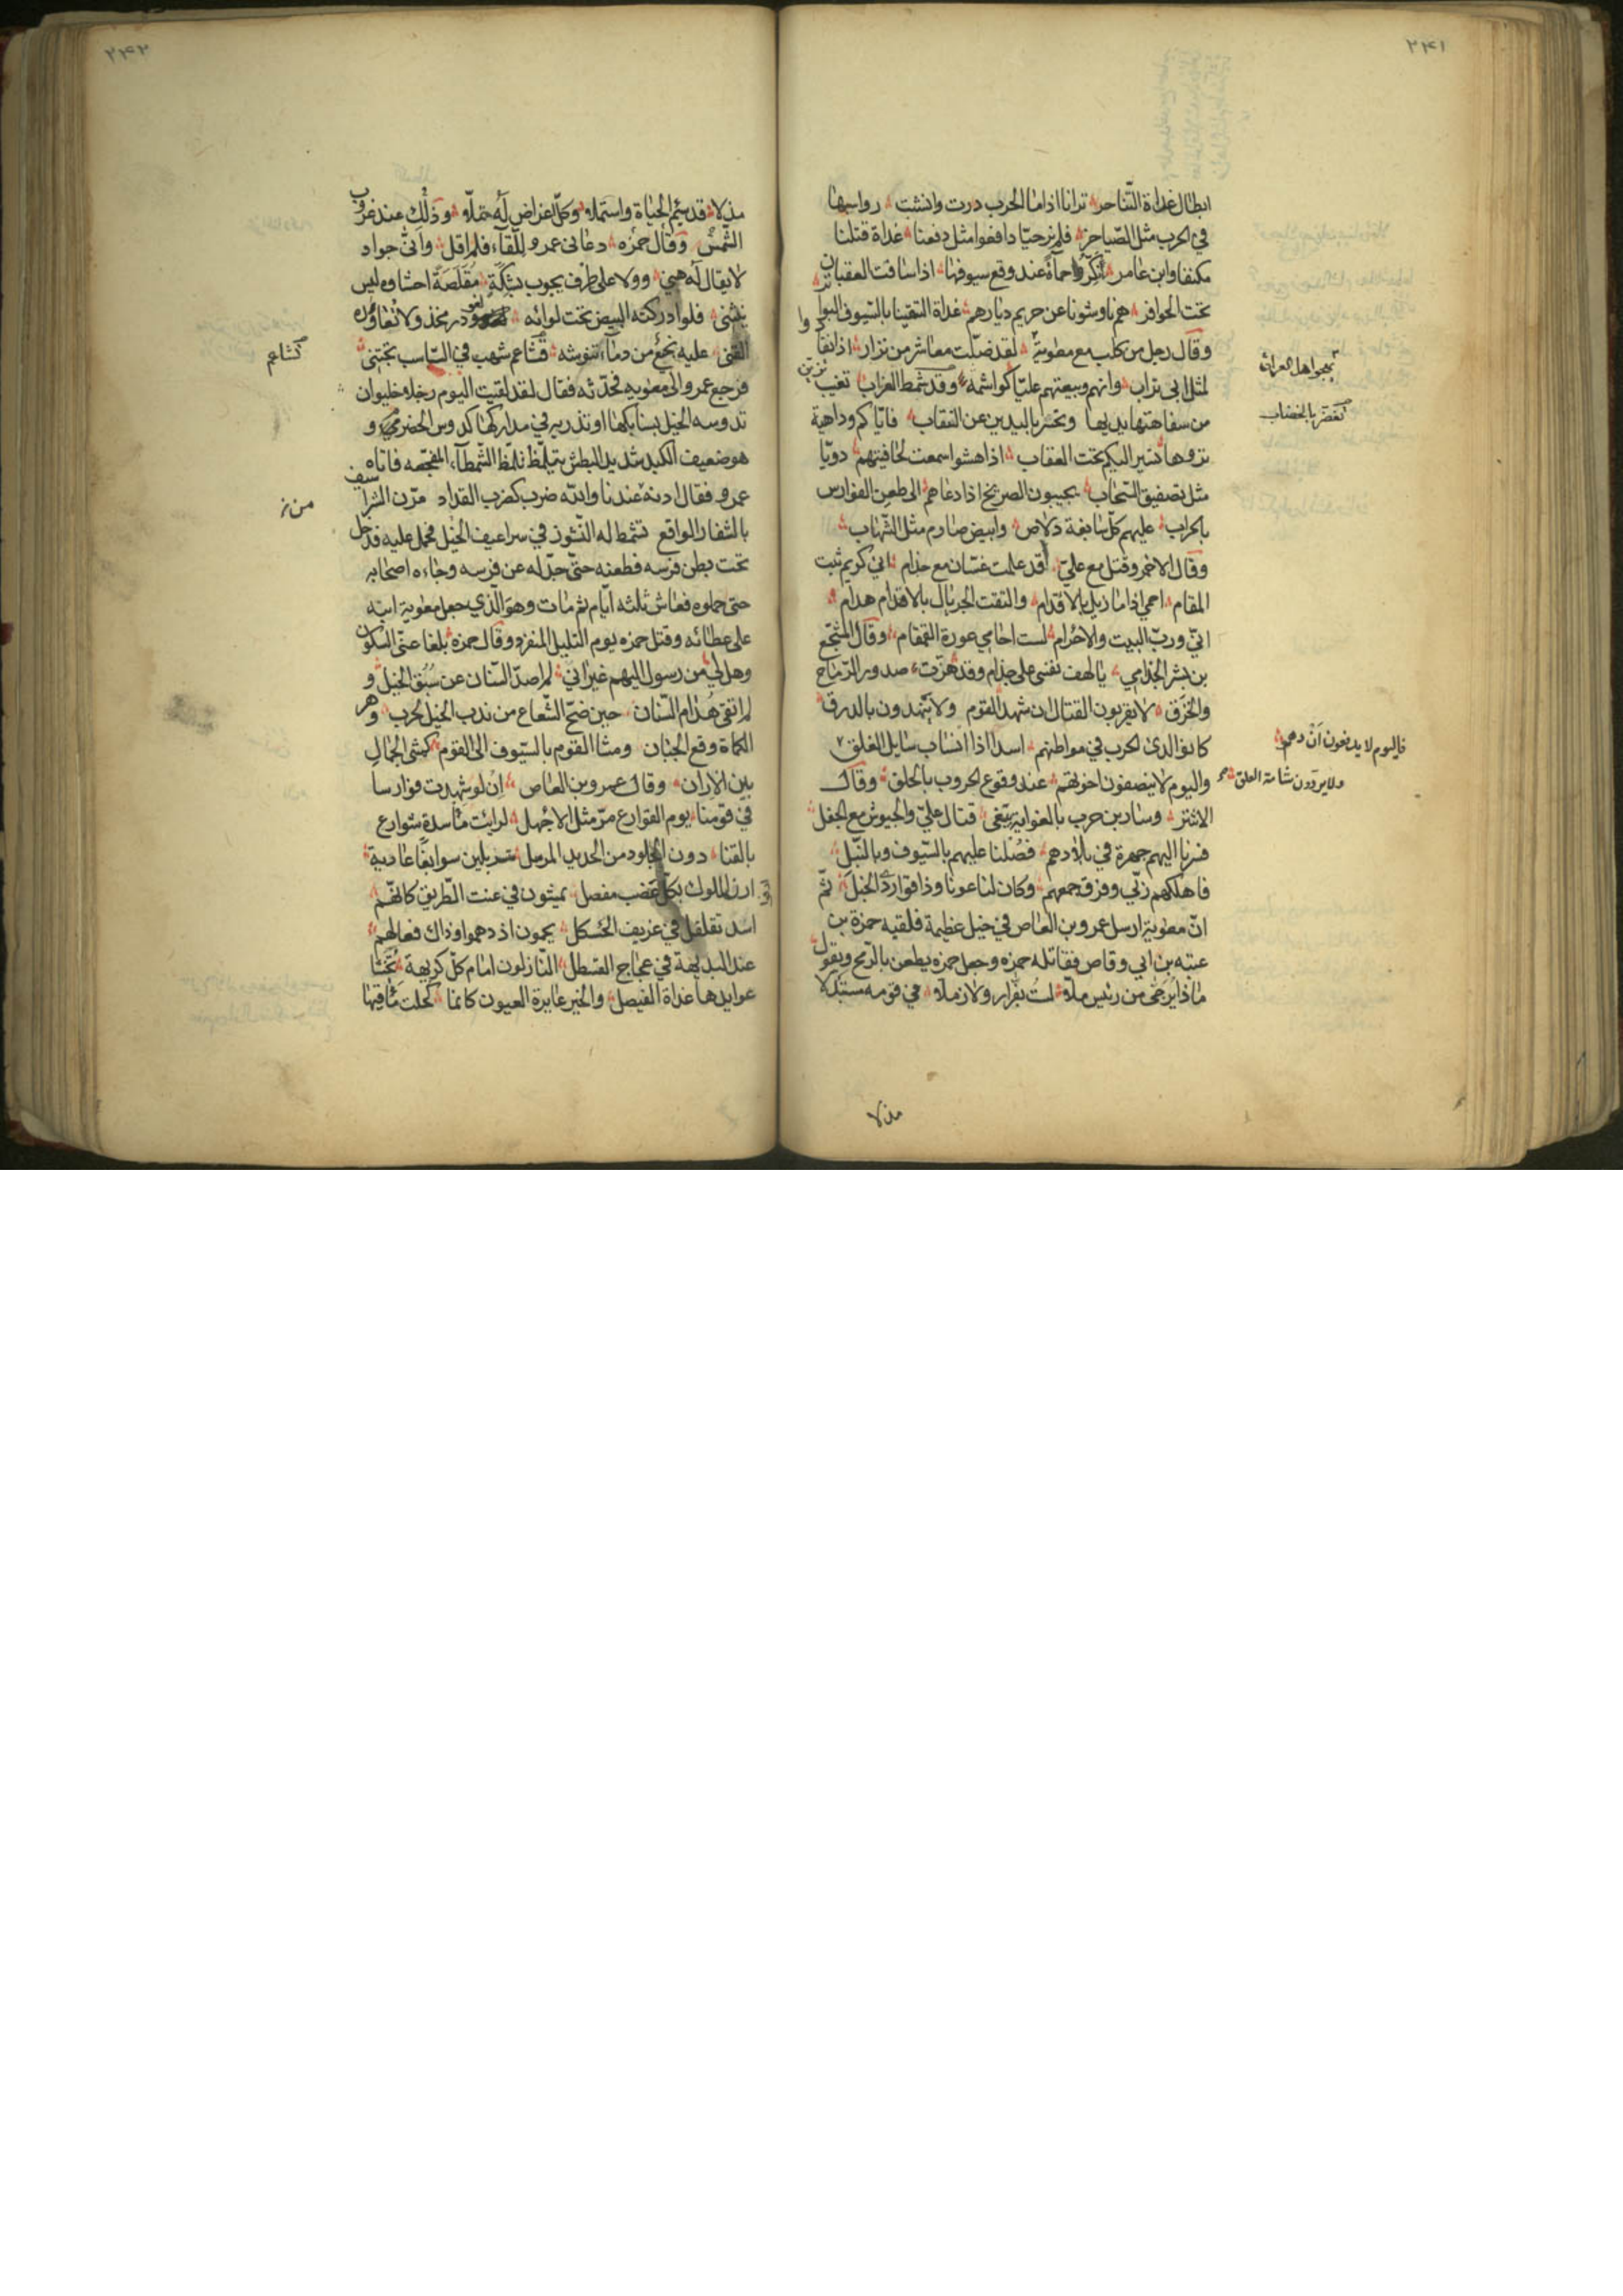 ٢٤١
ابطال غداة التناحر ترانا اذا ما الحرب درت وانشبت رواسيها
في الحرب مثل الضياحز فلم نر حيا دافعوا مثل دفعنا غداة قتلنا
مكنفا وابن عامر اكر واحماة عند وقع سيوفها اذا سافت العقبان
تحت الحوافر هم ناوشونا عن حريم ديارهم غداة التقينا بالسيوف البواتر
وقال رجل من كلب مع معوية لقد ضلت معاشر من نزار اذا انقادوا
لمثل ابي تراب وانهم وبيعتهم عليا كواشمة وقد شمط الغراب تغيب
يهجوا اهل العراق
من سفاهتها يديها وتحسر باليدين عن النقاب فاياكم وداهية
كتغضر بالخضاب
نزوها تسير اليكم تحت العقاب اذا هشوا سمعت لحافيتهم دويا
مثل تصفيق السحاب يجيبون الصريخ اذا دعاهم الى طعن الفوارس
بالحراب عليهم كل سابغة دلاص وابيض صارم مثل الشهاب
وقال الاخر وقتل مع علي قد علمت غسان مع جذام اني كريم ثبت
المقام احمي اذا ما زيل بالاقدام والتقت الجريال بالاقدام هدام
اني ورب البيت والاحرام لست احامي عورة القمقام وقال المشجع
بن بشر الجذامي يا لهف نفسي على جذام وقد هزت صدور الرماح
والخرق لا يقربون القتال ان شهد القوم ولا يتهدون بالدرق
كانوا لدى الحرب في مواطنهم اسدا اذا انساب سايل الغلق
فاليوم لا يدفعون ان دهموا
ولا يردون شامة العلق
واليوم لا ينصفون اخوتهم عند وقوع الحروب بالحلق وقال
الاشتر وسار بن حرب بالغواية يبتغى قتال علي والجيوش مع الحفل
فسرنا اليهم جهرة في بلادهم فصلنا عليهم بالسيوف وبالنبل
فاهلكهم ربي وفرق جمعهم وكان لنا عونا وذاقوا ردى الخبل ثم
ان معوية ارسل عمرو بن العاص في خيل عظيمة فلقيه حمزة بن
عتبه بن ابي وقاص فقاتله حمزه وجعل حمزه يطعن بالرمح ويقول
ماذا يرجى من رئيس ملا لست بفرار ولا زملا في قومه مستبدلا
مذلا
٢٤٢
مذلا قد سئم الحياة واستملا وكل اغراض له تملا وذلك عند غروب
الشمس وقال حمزه دعانى عمرو للقآء فلم اقل واى جواد
لا يقال له هني وولا على طرف يجوب بشكة مقلصة احشاوه ليس
ينثنى فلو ادركته البيض تحت لوائه لغودر مجدلا تعاوره
القنى عليه نجع من دمآء تنوشه قشاعم شهب في السباسب تجتنى
كشاعم
فرجع عمرو الى معوية فحدثه فقال لقد لقيت اليوم رجلا خليق ان
تدوسه الخيل بسنابكها او تذريه في مداركها كدوس الحضرمي و
هو ضعيف الكبد شديد البطش يتلمظ تلمظ الشمطآء المفجعه فاتاه
عمرو فقال ادنه عندنا والله ضرب كضرب القداد مرن الشراسيف
من
بالشفار الواقع تشمط له النشوز في سراعيف الخيل فحمل عليه فدخل
تحت بطن فرسه فطعنه حتى جدله عن فرسه وجاءه اصحابه
حتى حملوه فعاش ثلثه ايام ثم مات وهو الذي جعل معوية ابنه
على عطائه وقتل حمزه يوم التليل المنفرد وقال حمزه بلغا عنى السكون
وهل لي من رسول اليهم غير انى لم اصد السنان عن سبق الخيل و
لم اتقى هذام السنان حين ضج الشعاع من ندب الخيل لحرب وهر
الكماة وقع الجبان ومشا القوم بالسيوف الى القوم كمشى الجمال
بين الاران وقال عمرو بن العاص ان لو شهدت فوارسا
في قومنا يوم القوارع مر مثل الاجهل لرايت ماسدة شوارع
بالقنا دون الجلود من الحديد المرسل متسربلين سوابغا عادية
ارن الملوك بكل عضب مفصل يمشون في عنت الطريق كانهم
اسد تقلقل في غريف الحسكل يحمون اذ دهموا وذاك فعالهم
عند البديهة في عجاج القسطل النازلون امام كل كريهة تخشا
عوايدها غداة الفيصل والخير عايرة العيون كانما كحلت ماقيها